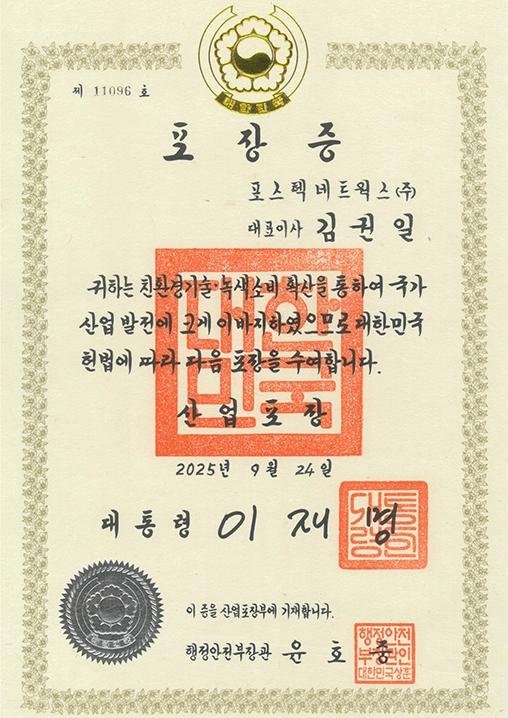 대한민국
제 11096 호
포장증
포스텍네트웍스(주)
대표이사 김권일
귀하는 친환경기술·녹색소비 확산을 통하여 국가
산업 발전에 크게 이바지하였으므로 대한민국
헌법에 따라 다음 포장을 수여합니다.
산업포장
2025년 9월 24일
대통령 이재명
이 증을 산업포장부에 기재합니다.
행정안전부장관 윤호중
행정안전
부장관인
대한민국상훈